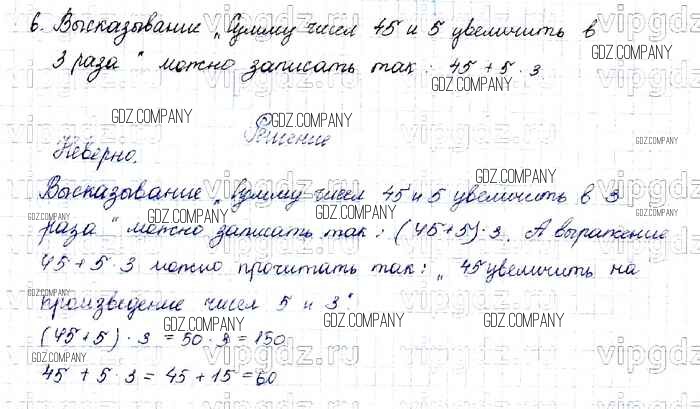 6. Высказывание „Сумму чисел 45 и 5 увеличить в
3 раза“ можно записать так: 45 + 5 · 3
Решение
Неверно.
Высказывание „Сумму чисел 45 и 5 увеличить в 3
раза“ можно записать так: (45+5)·3. А выражение
45 + 5 · 3 можно прочитать так: „45 увеличить на
произведение чисел 5 и 3“.
(45+5) · 3 = 50 · 3 = 150
45 + 5 · 3 = 45 + 15 = 60
GDZ.COMPANY
vipgdz.ru